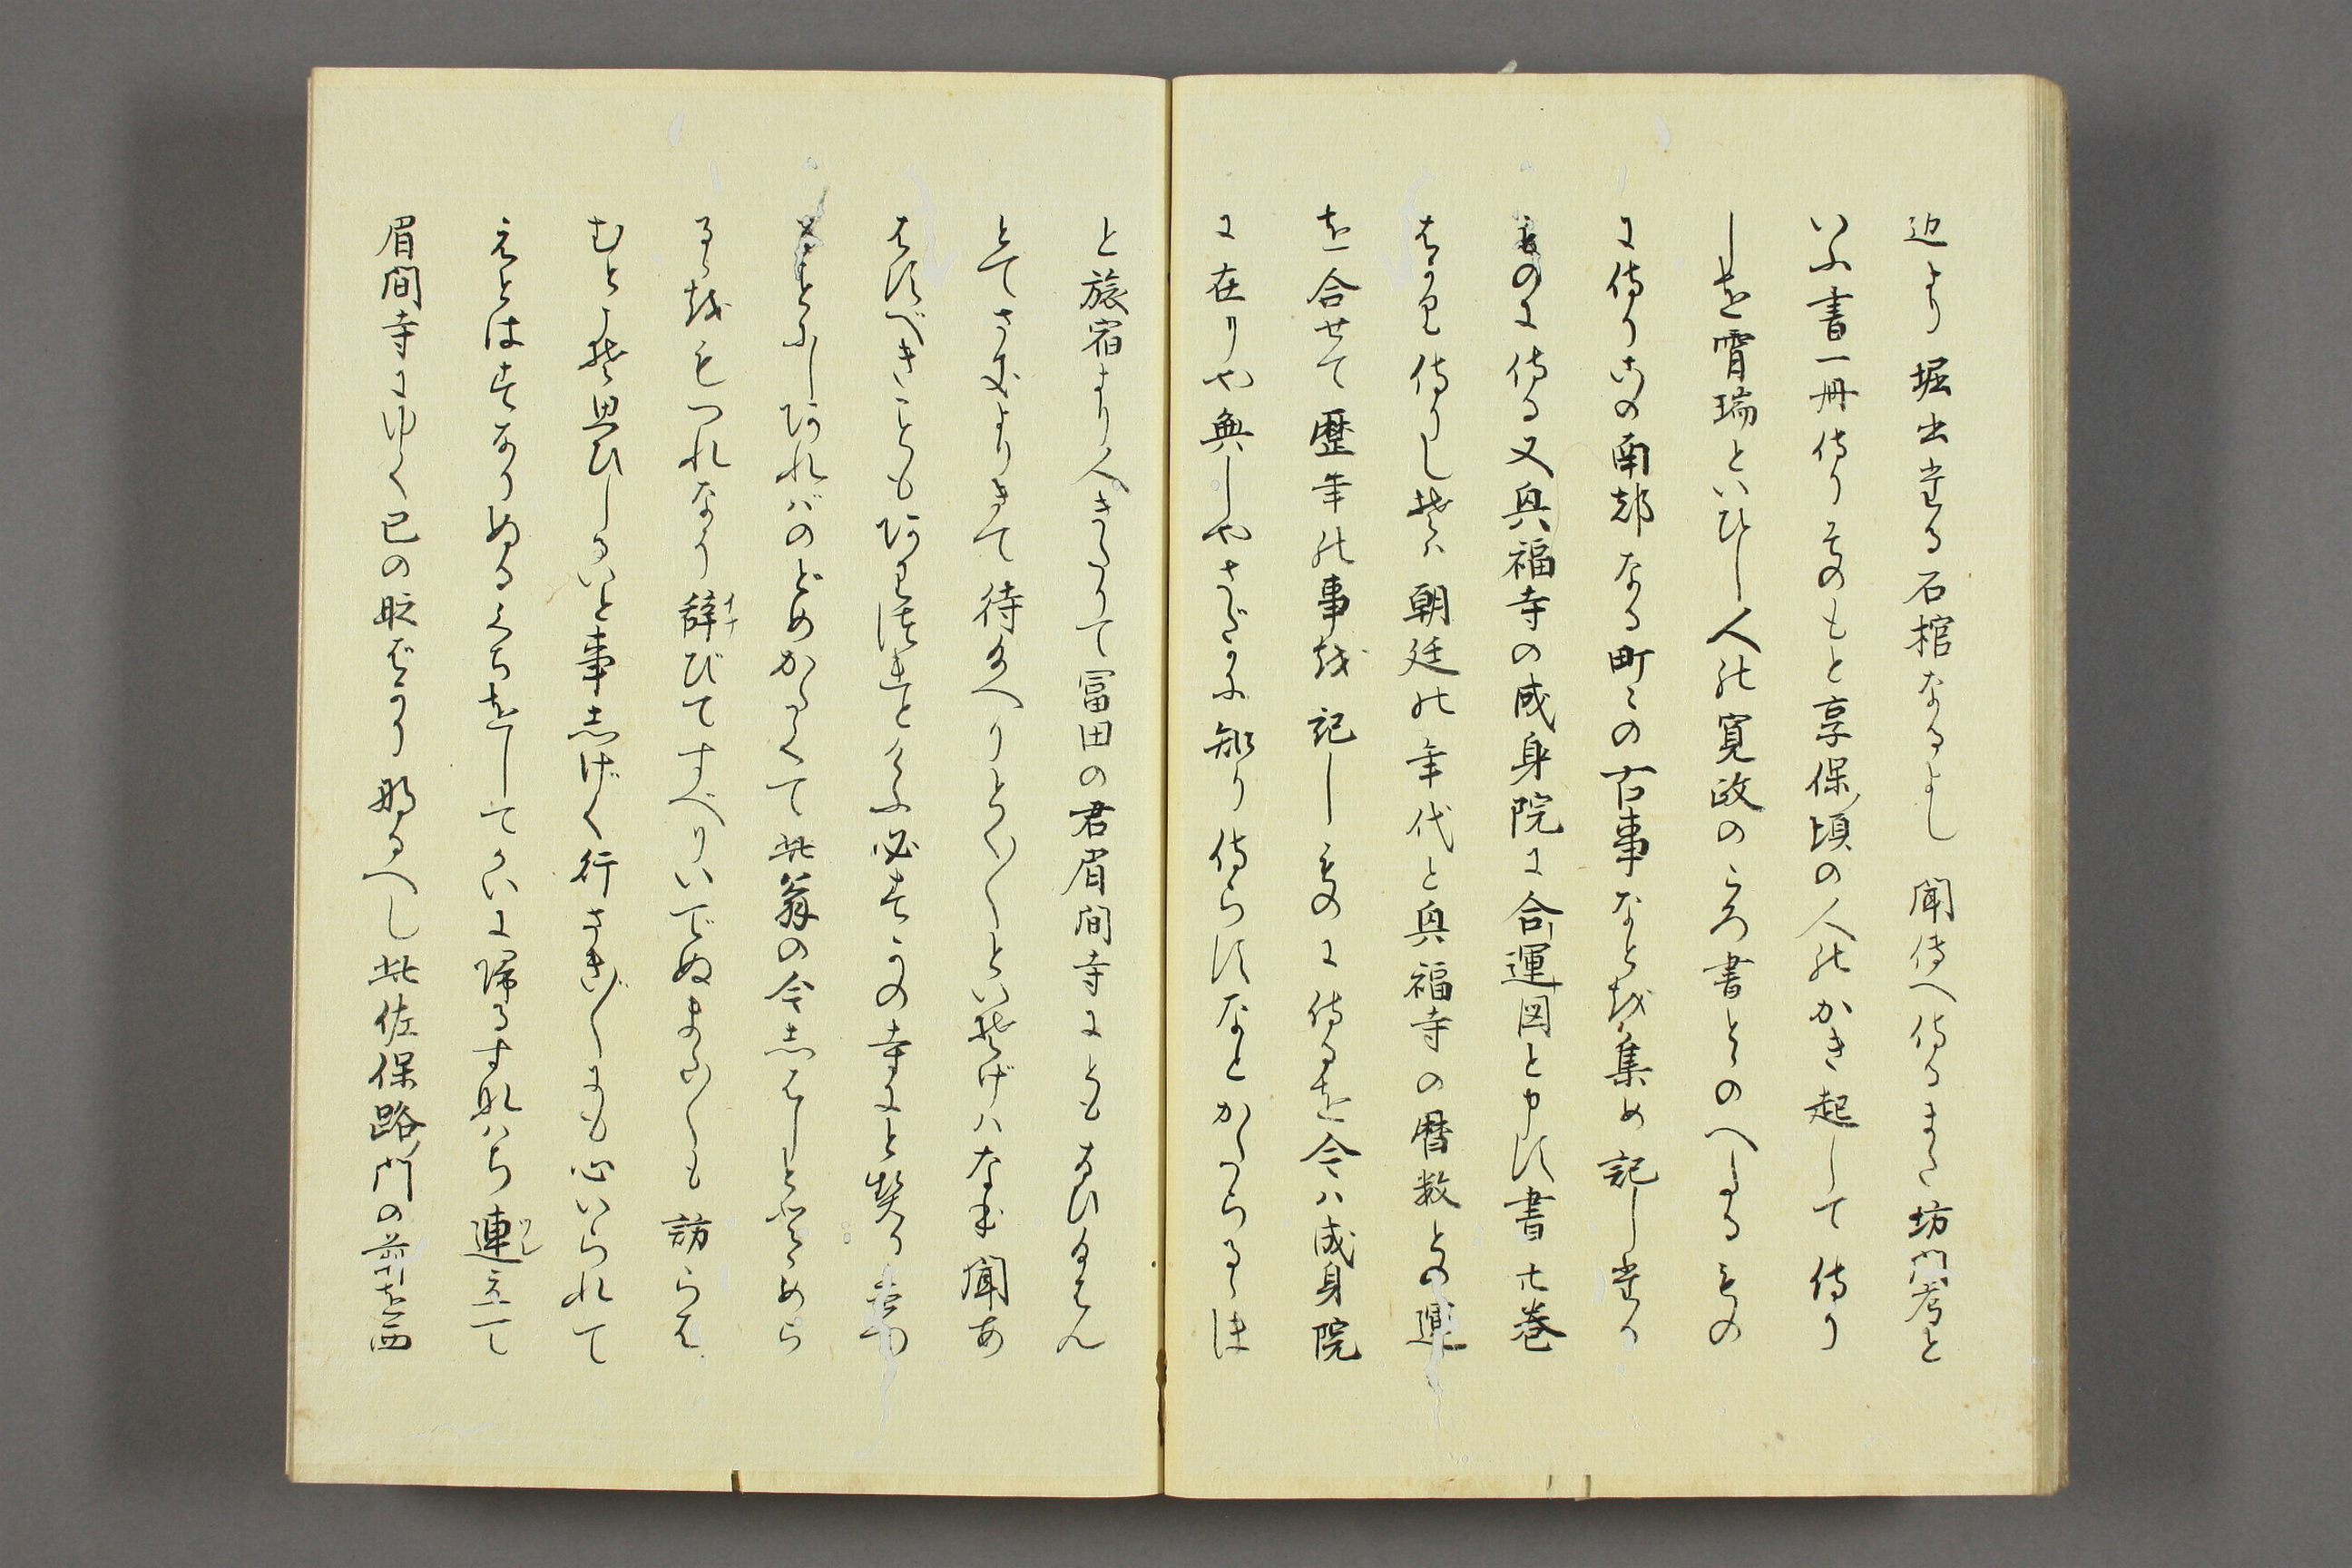 辺より堀出たる石棺なるよし聞傳へ侍るまた坊門考と
いふ書一冊侍りそのもと享保頃の人のかき起して侍り
しを霄瑞といひし人の寛政のころ書とゝのへしるもの
に侍りこの南都なる町々の古事なとを集め記したる
ものに侍る又興福寺の成身院に合運図と申す書七巻
はかり侍りしそは朝廷の年代と興福寺の暦数との運
を合せて歴年の事を記しゝものに侍るを今ハ成身院
に在りや無しやさだかに知り侍らすなとかたらるゝほ
と旅宿より人きたりて冨田の君眉間寺にともなひ給はん
とてさきよりきて待給へりとく〳〵といそげハなほ聞あ
はすべきことも
ことにしあれバのどめかたくて此翁の今志はしとゝめら
るゝをもつれなう辞びてすべりいでぬまた〳〵も訪らは
むとこそ思ひしかいと事志げく行さき〴〵にも心いられて
えとはすなりぬるくちをしくてかいに帰るすなハち連立て
眉間寺にゆく巳の時ばかりなるへし此佐保路門の前を西